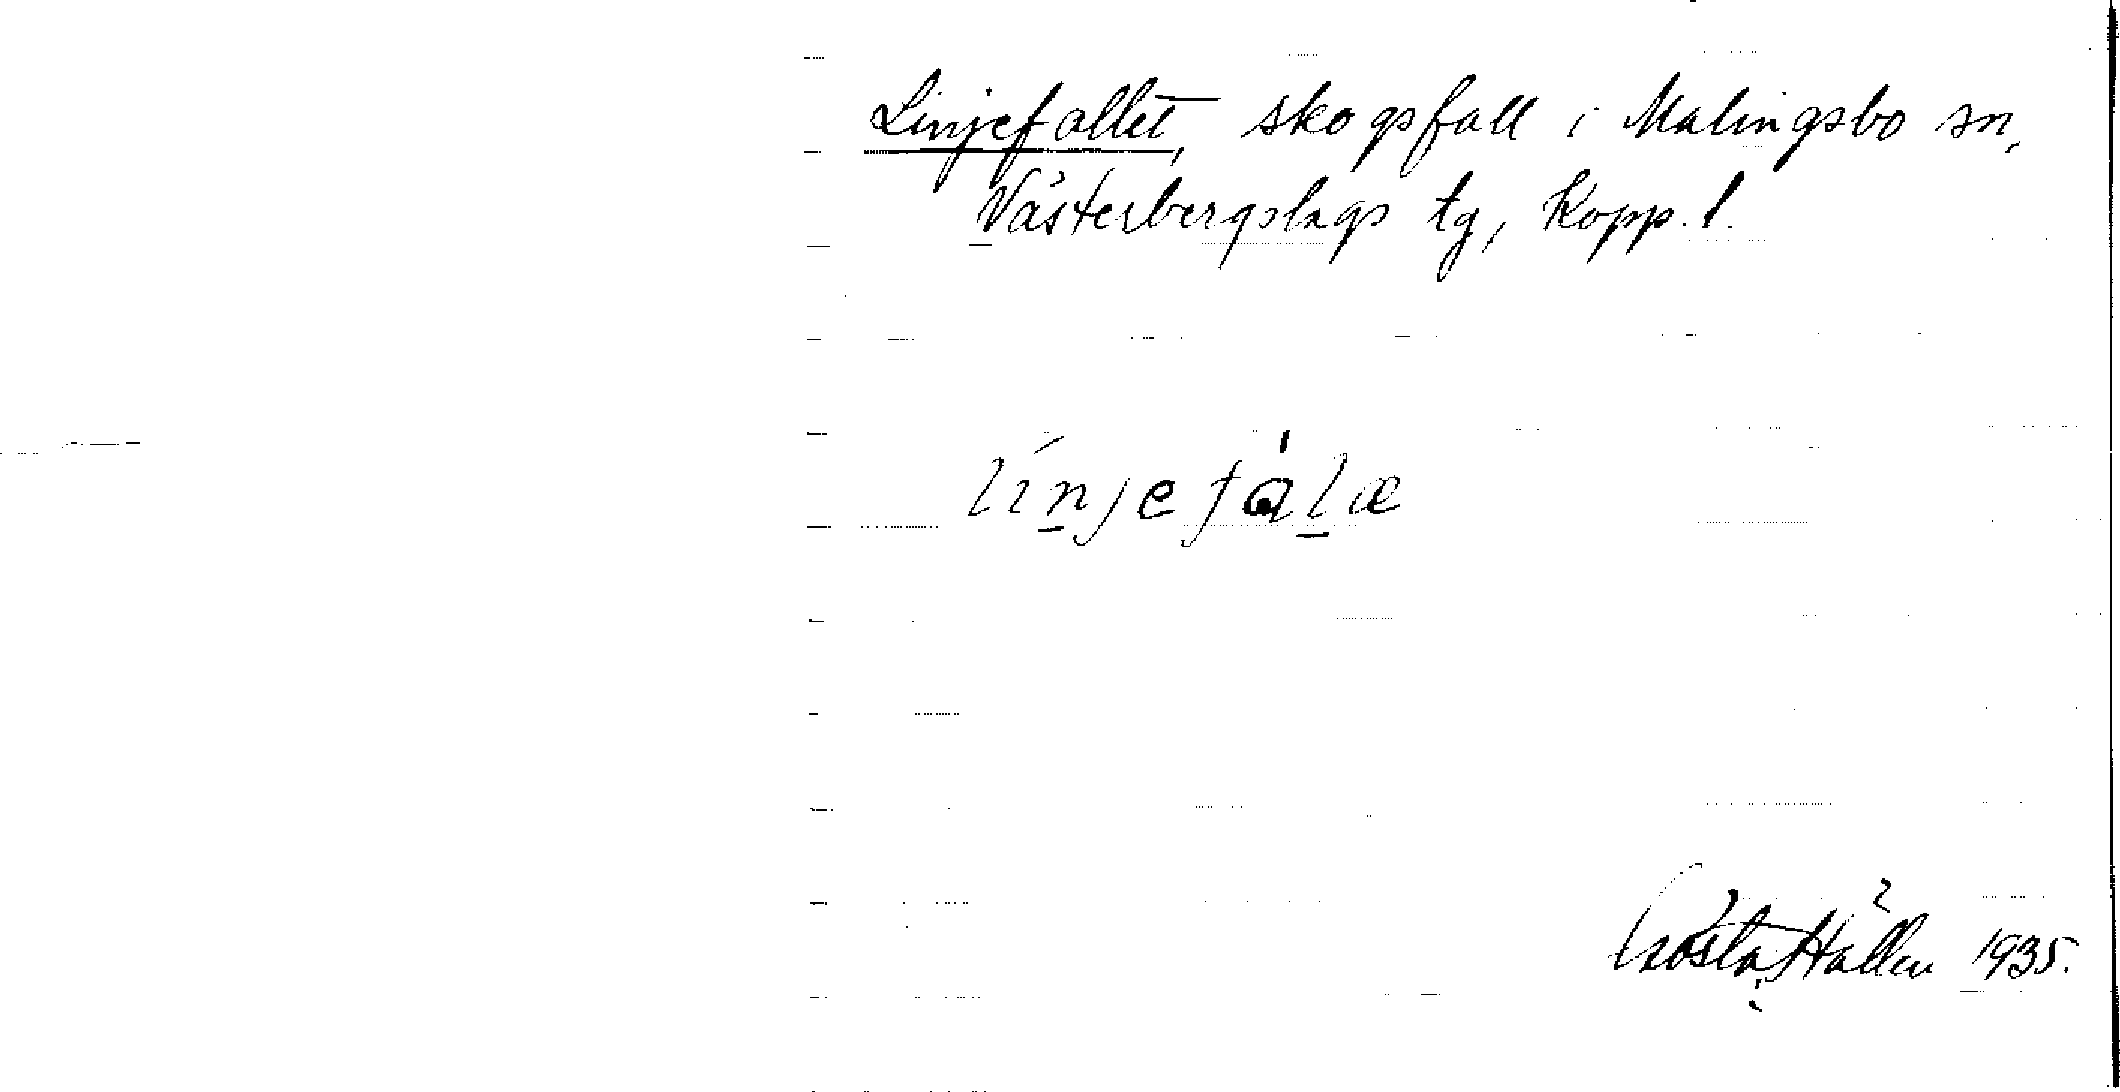 Linjefallet, skogsfall i Malingsbo sn,
Västerbergslags tg, Kopp. l.
línjefàlæ
Gösta Hållen 1935.